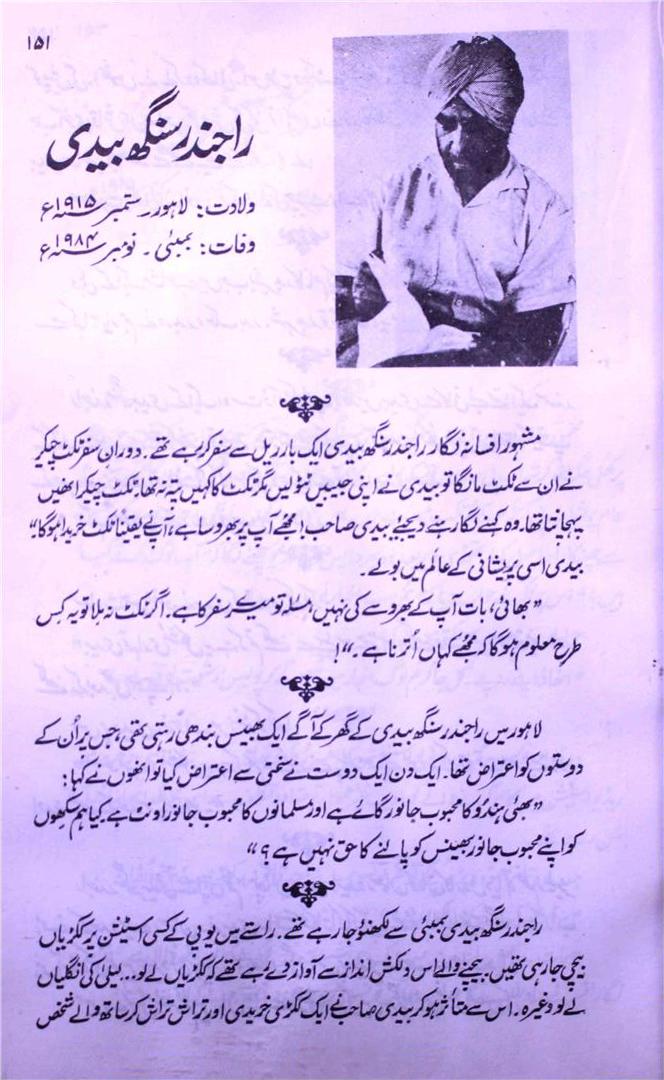 ۱۵۱
راجندر سنگھ بیدی
ولادت: لاہور ستمبر ۱۹۱۵ء
وفات: بمبئی۔ نومبر ۱۹۸۴ء
مشہور افسانہ نگار راجندر سنگھ بیدی ایک بار ریل سے سفر کر رہے تھے۔ دوران سفر ٹکٹ چیکر
نے ان سے ٹکٹ مانگا تو بیدی نے اپنی جیبیں ٹٹولیں مگر ٹکٹ کا کہیں پتہ نہ تھا۔ ٹکٹ چیکر انھیں
پہچانتا تھا۔ وہ کہنے لگا رہنے دیجئے بیدی صاحب! مجھے آپ پر بھروسا ہے، آپ نے یقیناً ٹکٹ خریدا ہوگا"
بیدی اسی پریشانی کے عالم میں بولے۔
"بھائی، بات آپ کے بھروسے کی نہیں، مسئلہ تو میرے سفر کا ہے۔ اگر ٹکٹ نہ ملا تو یہ کس
طرح معلوم ہوگا کہ مجھے کہاں اُترنا ہے۔"!
لاہور میں راجندر سنگھ بیدی کے گھر کے آگے ایک بھینس بندھی رہتی تھی، جس پر اُن کے
دوستوں کو اعتراض تھا۔ ایک دن ایک دوست نے سختی سے اعتراض کیا تو انھوں نے کہا:
"بھئی ہندو کا محبوب جانور گائے ہے اور مسلمانوں کا محبوب جانور اونٹ ہے کیا ہم سکھوں
کو اپنے محبوب جانور بھینس کو پالنے کا حق نہیں ہے؟"
راجندر سنگھ بیدی بمبئی سے لکھنؤ جا رہے تھے۔ راستے میں یوپی کے کسی اسٹیشن پر ککڑیاں
بیچی جا رہی تھیں۔ بیچنے والے اس دلکش انداز سے آواز دے رہے تھے کہ ککڑیاں لے لو... لیلیٰ کی انگلیاں
لے لو وغیرہ۔ اس سے متأثر ہو کر بیدی صاحب نے ایک ککڑی خریدی اور تراش تراش کر ساتھ والے شخص